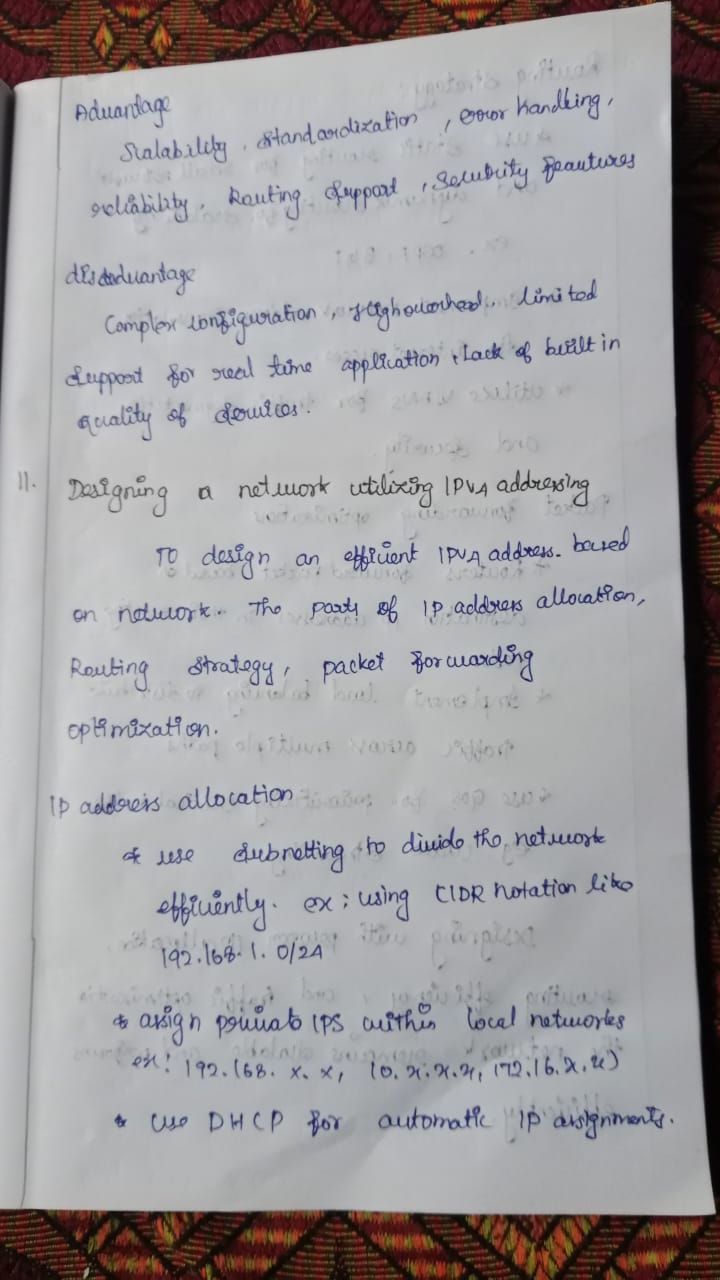 Advantage
Scalability, standardization, error handling,
reliability, Routing support, Security feautures
disadvantage
Complex configuration, High overhead, limited
support for real time application, Lack of built in
quality of services.
11. Designing a network utilizing IPV4 addressing
To design an efficient IPV4 address. based
on network. The parts of IP address allocation,
Routing strategy, packet forwarding
optimization.
IP address allocation
* use subnetting to divide the network
efficiently. ex: using CIDR notation like
192.168.1.0/24
* assign private IPS within local networks
ex: 192.168.x.x, 10.x.x.x, 172.16.x.x)
* Use DHCP for automatic IP assignments.